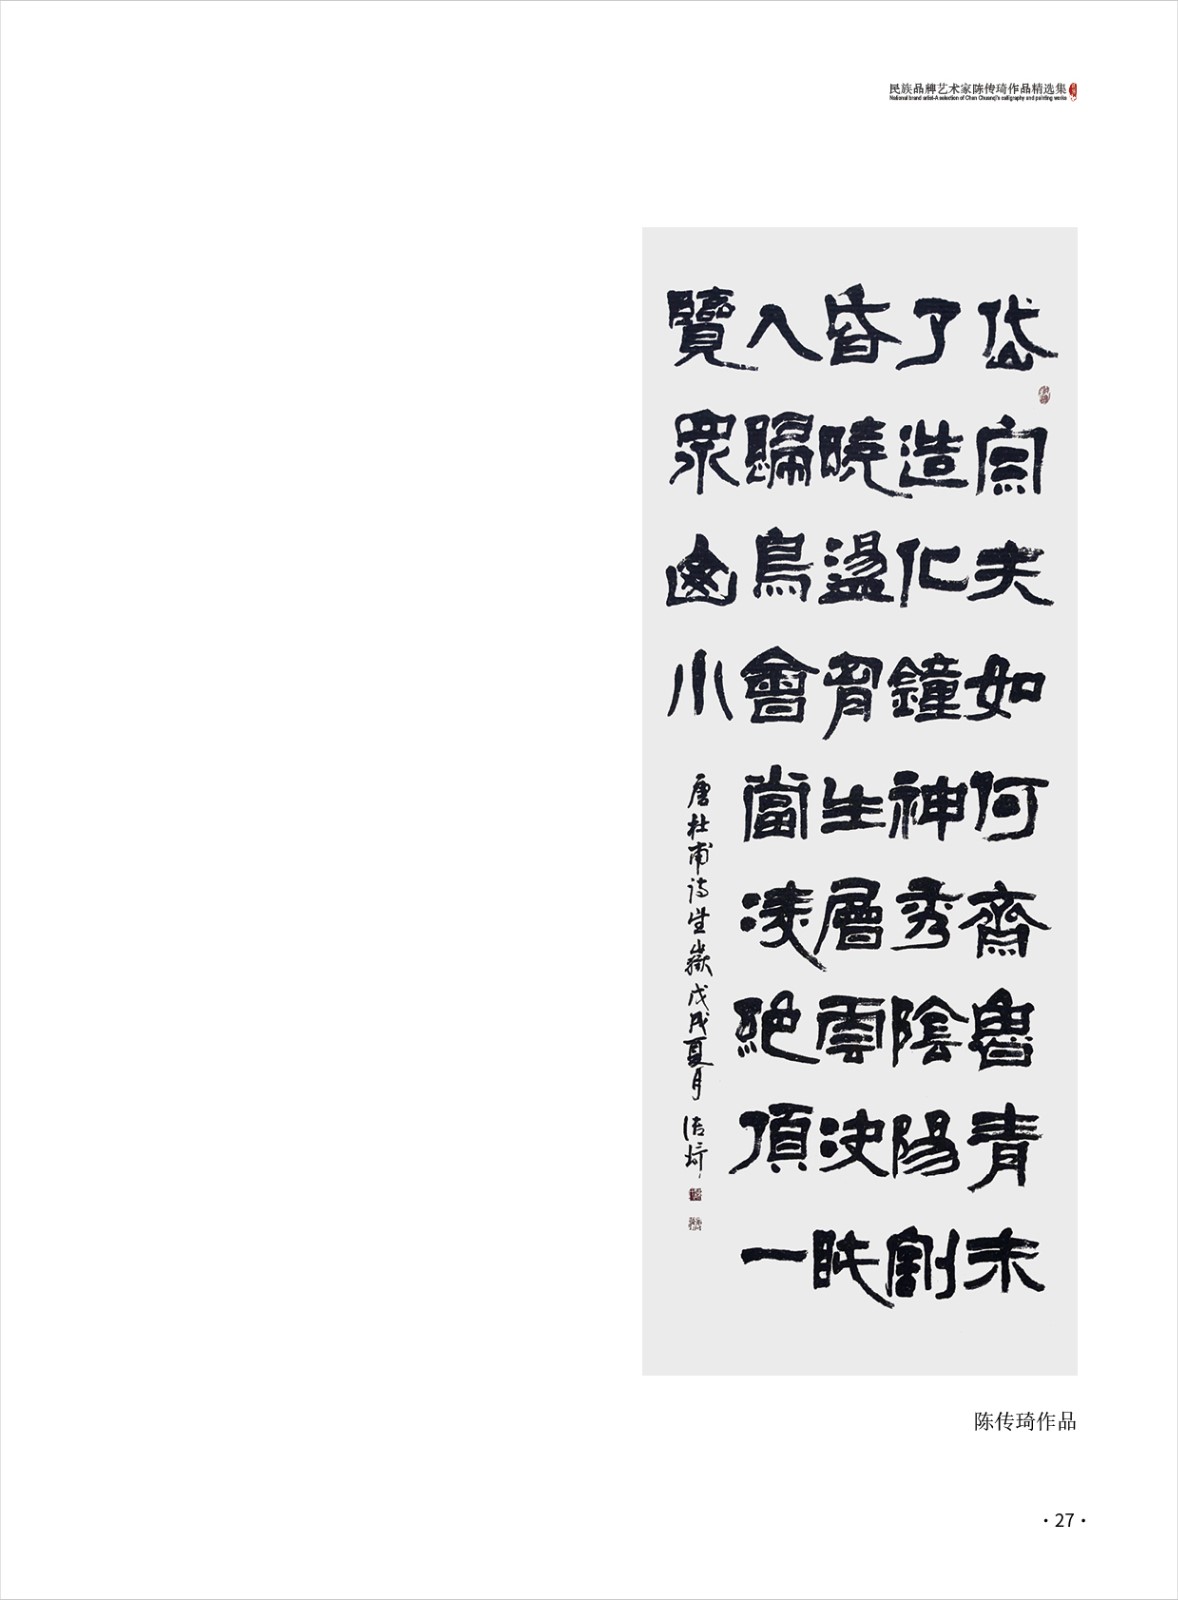 民族品牌艺术家陈传琦作品精选集
National brand artist-A selection of Chen Chuanqi's calligraphy and painting works
岱宗夫如何齊魯青未
了造化鐘神秀陰陽割
昏曉盪胷生層雲決眦
入歸鳥會當凌絕頂一
覽眾山小
唐杜甫诗望嶽戊戌夏月 传琦
陈传琦作品
·27·